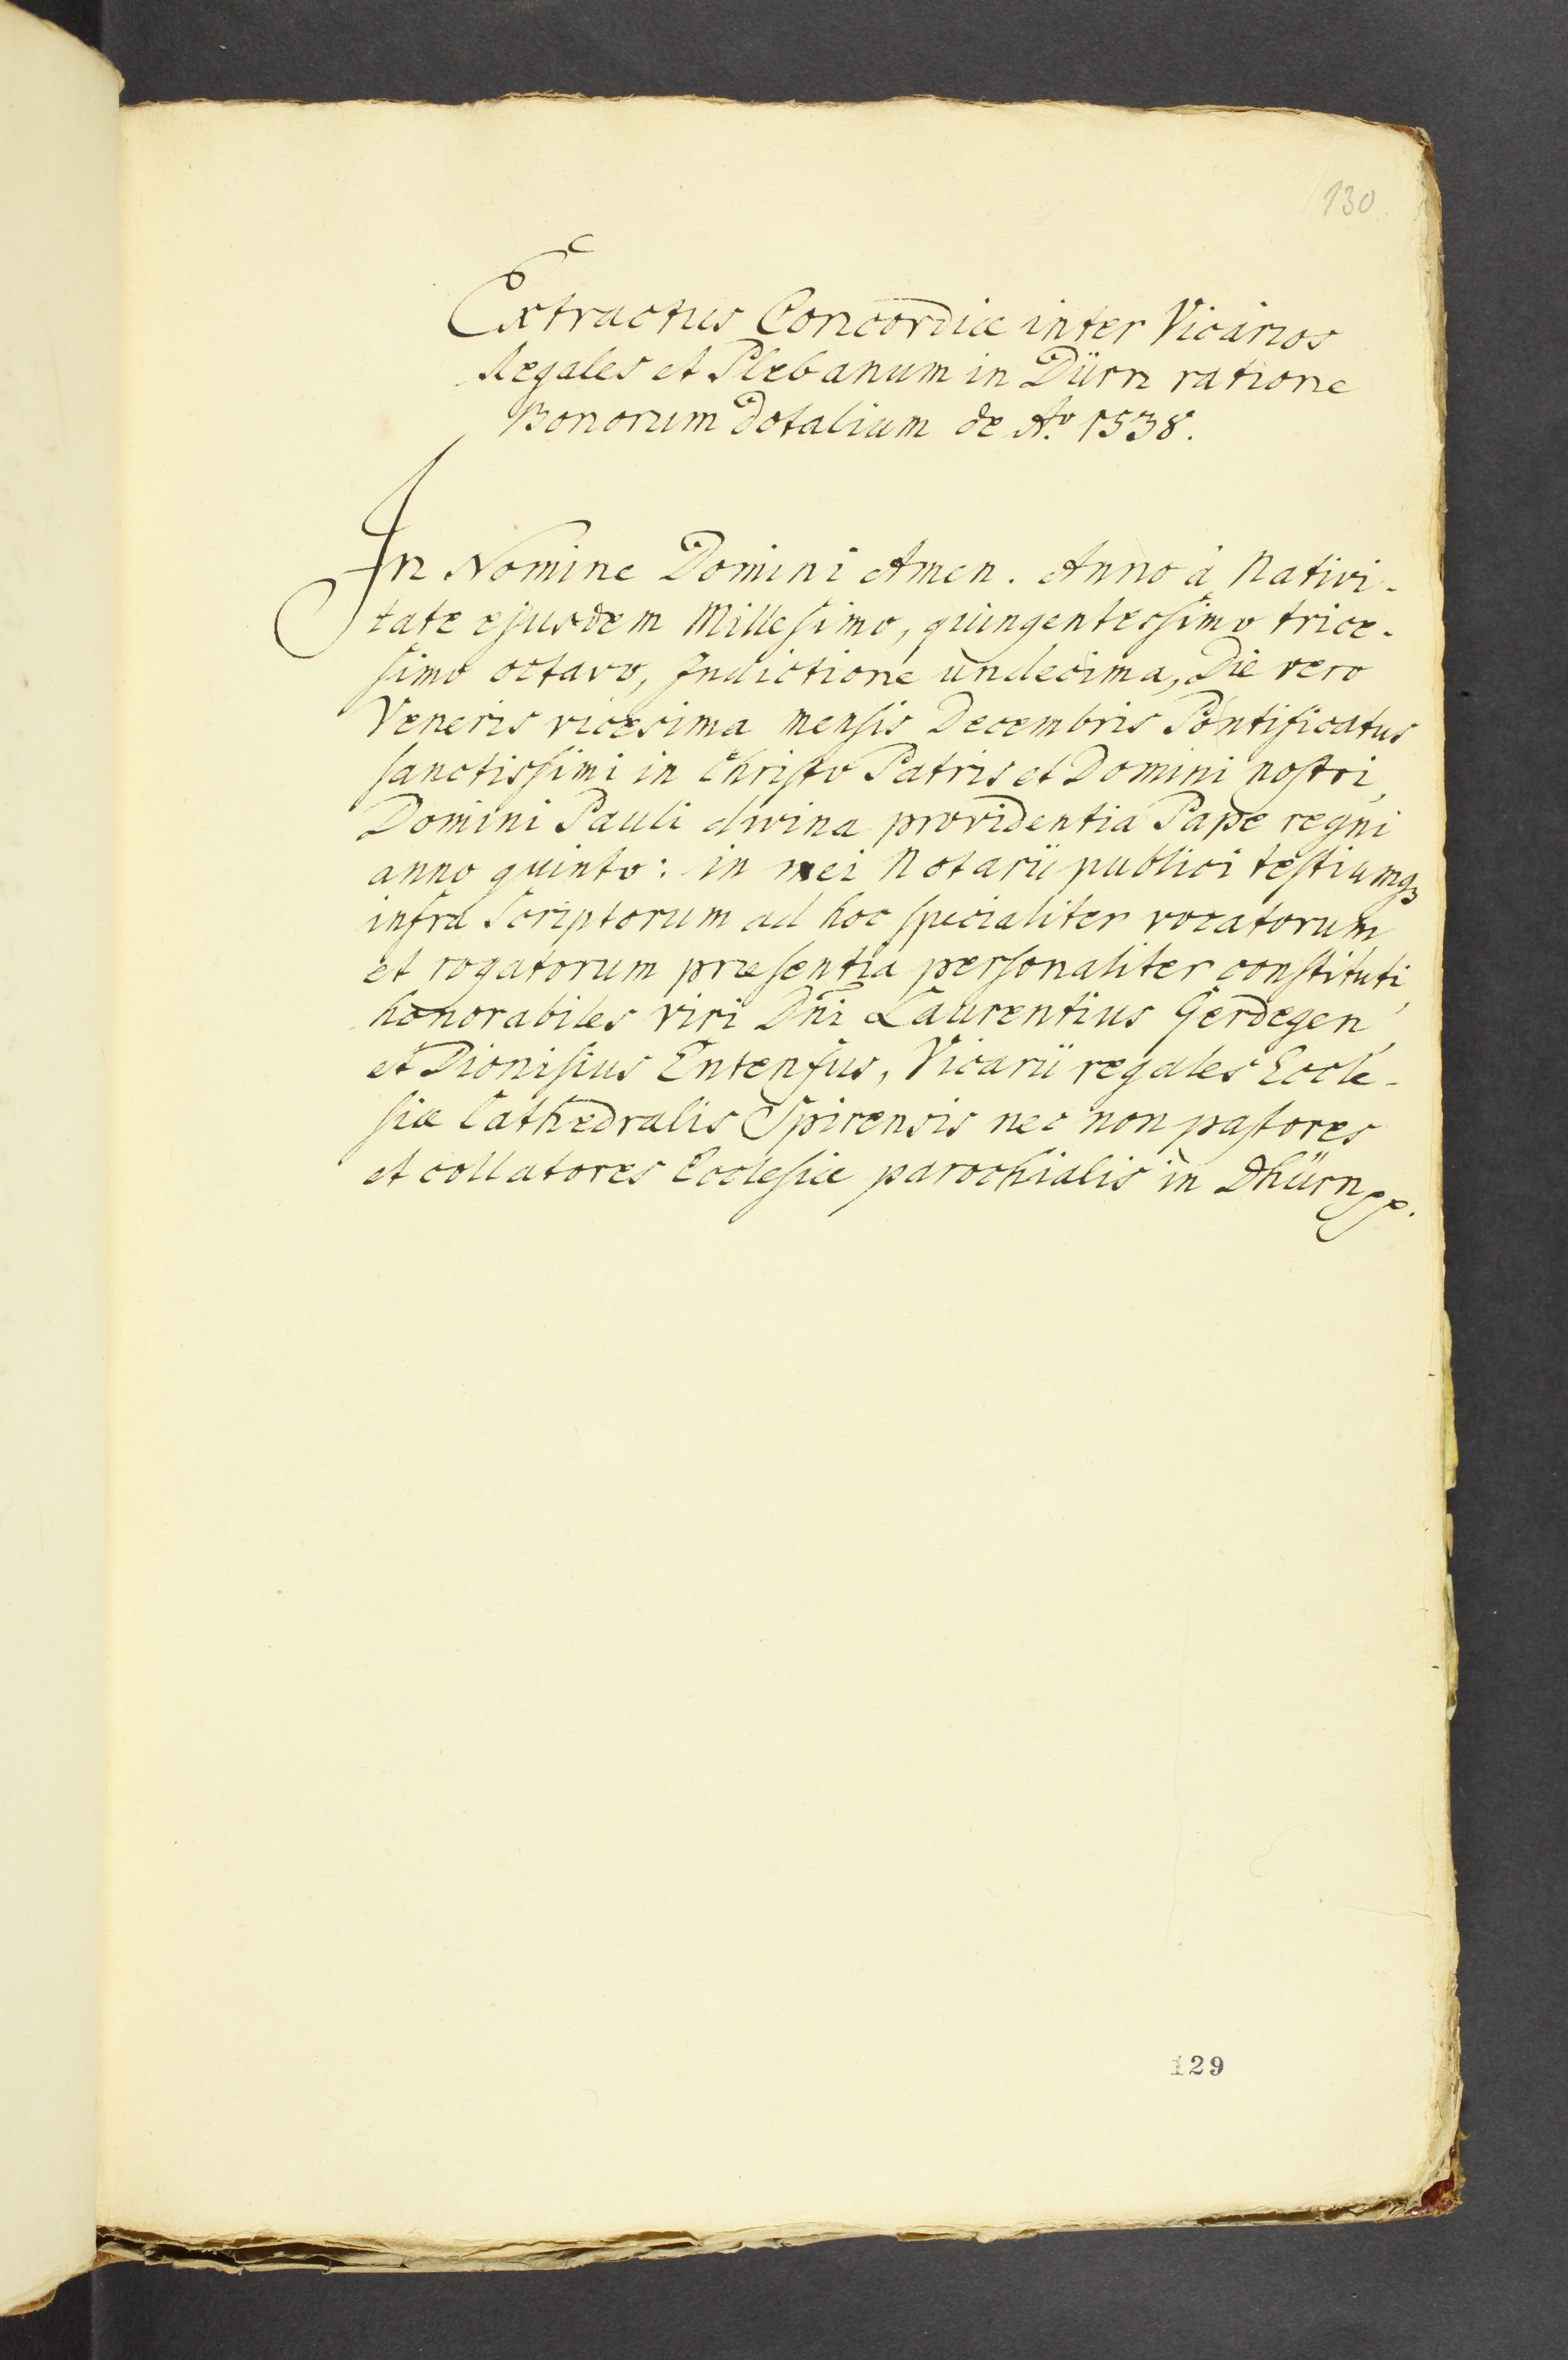 130
Extractus Concordiæ inter Vicarios
Regales et Plebanum in Dürn ratione
Bonorum Dotalium de Aº. 1538.
In Nomine Domini Amen. Anno à Nativi-
tate ejusdem Millesimo, quingentessimo trice-
simo octavo, Indictione undecima, Die vero
Veneris vicesima mensis Decembris Pontificatus
sanctissimi in Christo Patris et Domini nostri,
Domini Pauli divina providentia Pape regni
anno quinto: in mei Notarii publici testiumqz
infra Scriptorum ad hoc specialiter vocatorum,
et rogatorum præsentia personaliter constituti,
honorabiles viri Dn̄i Laurentius Gerdegen,
et Dionisius Entensus, Vicarii regales Eccle-
siæ Cathedralis Spirensis nec non pastores
et collatores Ecclesiæ parochialis in Dhürn
129